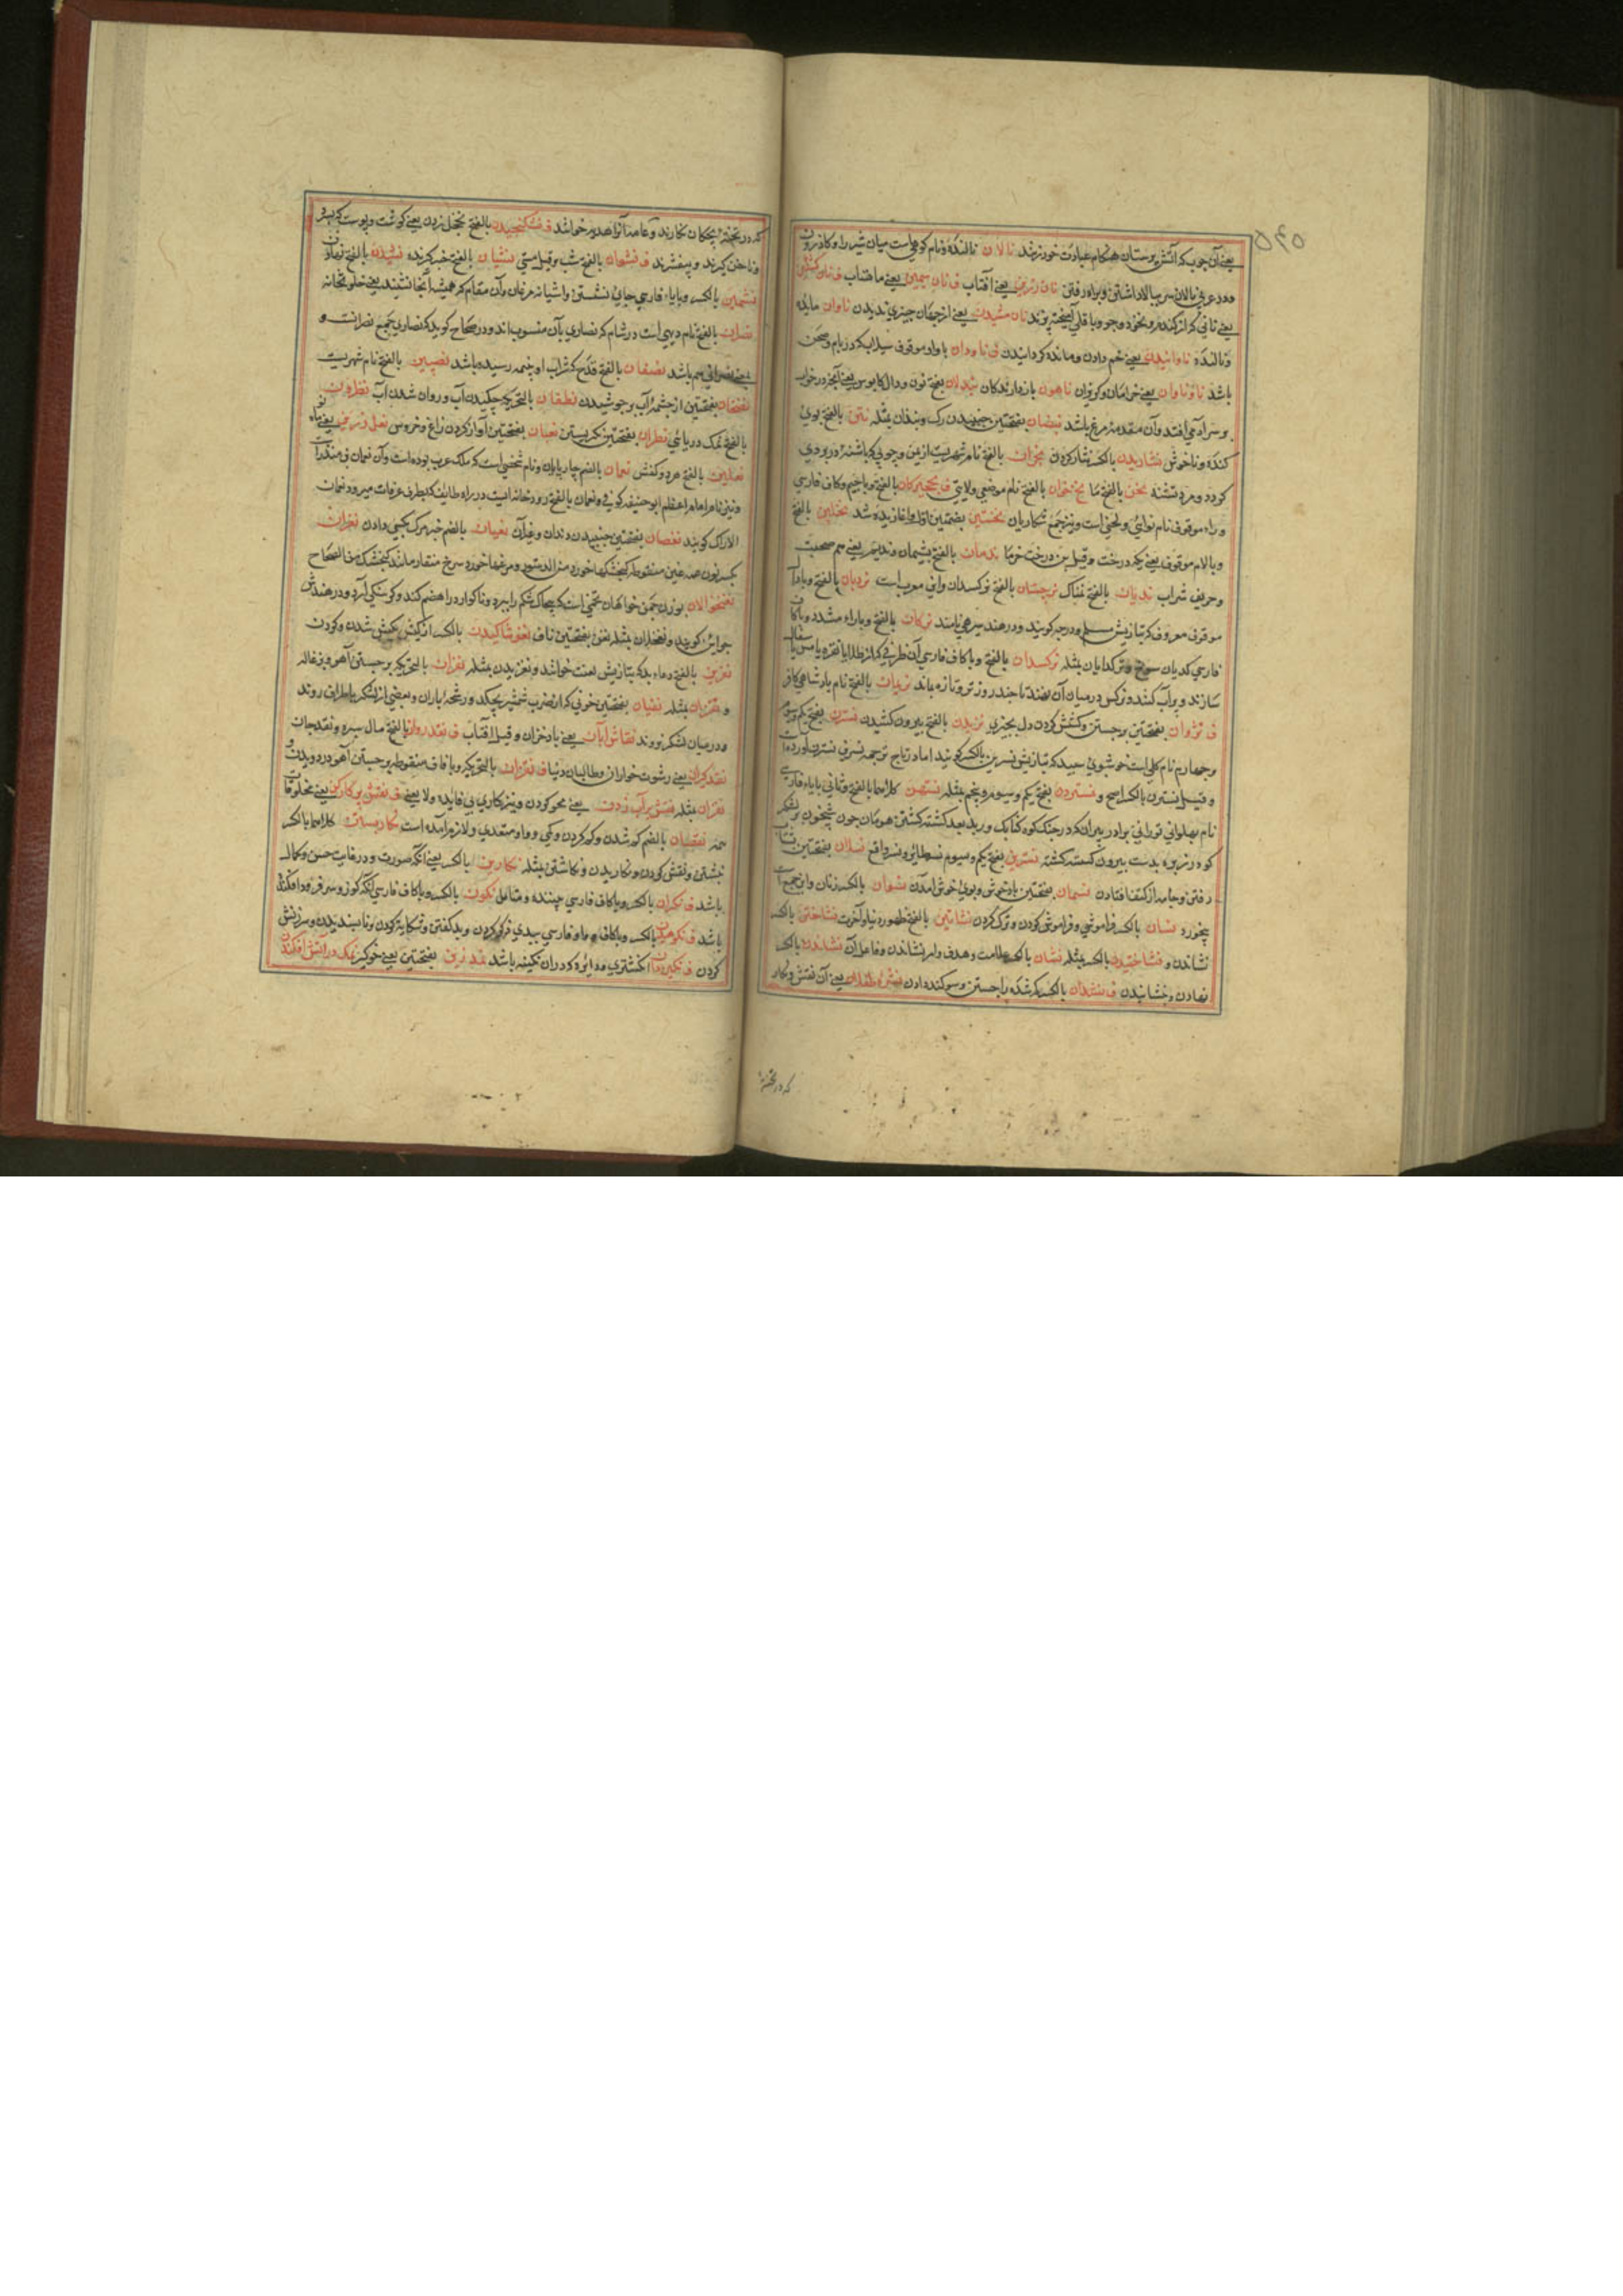 یعنی آن چوب که آتش پرستان هنگام عبادت خود زنند نالان نالنده و نام کوهی است میان شیراز و کازرون
و در عربی نالان سر ببالا داشتن و براه رفتن نان زرین یعنی آفتاب ف نان سیمین یعنی ماهتاب ف نان کشکین
یعنی نانی که از گندم و نخود و جو و باقلی آمیخته پزند نان مشیدن یعنی از جهان چیزی ندیدن ناوان مانده
و نالنده ناوانیدن یعنی خم دادن و مانده گردانیدن ف ناودان با واو موقوف سیلابکه در بام و صحن
باشد ناوناوان یعنی خرامان و کوزان ناهون بازدارندگان نبدلان بفتح نون و دال کابوس یعنی آنچه در خواب
بر سر آدمی افتد و آن مقدمه مرع باشد نبضان بفتحتین جنبیدن رگ و نبذان مثله نتن بالفتح بوی
کنده و ناخوش نثاریدن بالکسر نثار کردن نجران بالفتح نام شهریست از یمن و چوبی که باشنه در برو دی
کردد و مرد تشنه نحن بالفتح ما نخجوان بالفتح نام موضعی ولایتی ف نخجیرکان بالفتح و با جیم و کاف فارسی
و راء موقوف نام نوائی و لحنی است و نیز جمع شکاریان نخستین بضمتین اول و آغاز بدوشد نخلبن بالفتح
و بالام موقوف یعنی بیخ درخت و قیل بن درخت خرما ندمان بالفتح پشیمان و ندیم یعنی هم صحبت
و حریف شراب ندیان بالفتح نمناک نرجسان بالفتح نرکسدان و این معرب است نردبان بالفتح و با دال
موقوف معروف که بتازیش سلم و درجه گویند و در هند سیرهی نامند نرکان بالفتح و با راء مشدد و با کاف
فارسی گدایان سوخ و نرکدایان مثله نرکسدان بالفتح و با کاف فارسی آن ظرفی که از طلا یا نقره یا مس یا سفال
سازند و پر آب کنند و نرکس در میان آن نهند تا چند روز تر و تازه ماند نریمان بالفتح نام پادشاهی کافر
ف نزوان بفتحتین برجستن و کشش کردن دل بچیزی نزیدن بالفتح بیرون کشیدن نسترن بفتح یکم و سوم
و چهارم نام گلی است خوشبوی سپید که بتازیش نسرین بالکسر گویند اما در تاج ترجمه نسرین نسترن آورده است
و قیل نسترن بالکسر اصح و نستردن بفتح یکم و سیوم و پنجم مثله نستهن کلاهما بالفتح و ثانی با یاء فارسی
نام پهلوانی تورانی برادر پیران که در جنگ کوه کنابک و ربد بعد کشته گشتن هومان چون شبخون بر لشکر
گودرز برد بدست بیژن گستهم کشته نسترین بفتح یکم و سیوم نسر طایر و نسر واقع نسلان بفتحتین شتاب
رفتن و جامه از کتف افتادن نسمان بفتحتین باد خوش و بوی خوش آمدن نسوان بالکسر زنان و این جمع است
بیخورد نسیان بالکسر فراموشی و فراموش کردن و ترک کردن نشاتین بالفتح ظهور دنیا و آخرت نشاختن بالکسر
نشاندن و نشاختیدن بالکسر مثله نشان بالکسر علامت و هدف و امر نشاندن و فاعل آن نشاندن بالکسر
نهادن و خشانیدن ف نشدان بالکسر گمشده را جستن و سوگند دادن نشره طفلان یعنی آن نقش و نگار
که در تخته
که در تخته بچگان نگارند و عامه آنرا هدیه خوانند ف نشکنجیدن بالفتح نخچل زدن یعنی گوشت و پوست که بسر دو
ناخن گیرند و بیفشرند ف نشوان بالفتح شب و قیل مستی نشیان بالفتح خبر گیرنده نشیدن بالفتح نهادن
نشیمن بالکسر و با یاء فارسی جای نشستن و آشیانه مرغان و آن مقام که همیشه آنجا نشینند یعنی خلوتخانه
نصران بالفتح نام دیهی است در شام که نصاری بآن منسوب اند و در صحاح گوید که نصاری جمع نصرانست و
یعنی نصرانی هم باشد نصفان بالفتح قدح که شراب او بنیمه رسیده باشد نصیبین بالفتح نام شهریست
نضخان بفتحتین از چشمه آب بر جوشیدن نطفان بالتحریک چکیدن آب و روان شدن آب نطرون
بالفتح نمک دریائی نظران بفتحتین نگریستن نعبان بفتحتین آواز کردن زاغ و خروس نعل زرین یعنی ماه
نعلین بالفتح هر دو کفش نعمان بالضم چارپایان و نام شخصی است که ملک عرب بوده است و آن نعمان بن منذر است
و نیز نام امام اعظم ابو حنیفه کوفی و نعمان بالفتح رودخانه ایست در راه طایف که بطرف عرفات میرود نعمان
الاراک گویند نغضان بفتحتین جنبیدن دندان و غیر آن نعیان بالضم خبر مرگ کسی دادن نغران
بکسر نون صه غین منقوطه گنجشکها خورد من الدستور و مرغها خورد سرخ منقار مانند گنجشک من الصحاح
نغنخوالان بوزن چمن خواهان تخمی است که بچاک شکم را ببرد و ناگوارد را هضم کند و گرسنگی آرد و در هندش
جواین گویند و نغنخلان مثله نغن بفتحتین ناف نغوشاکیدن بالکسر از کیش بکیش شدن و کردن
نفرین بالفتح دعاء بد که بتازیش لعنت خوانند و نفریدن مثله نفزان بالتحریک برجستن آهو و بزغاله
و نقزان مثله نفیان بفتحتین خونی که از ضرب شمشیر بچکد و رشحه باران و بعضی از لشکر با طراف روند
و در میان لشکر نروند نقاش آبان یعنی باد خزان و قیل آفتاب ف نقد روان بالفتح مال سره و نقد جان
نقد گیران یعنی رشوت خواران و طالبان دنیا ف نقزان بالتحریک و با قاف منقوطه برجستن آهو در دویدن و
نقران مثله نقش بر آب زدن یعنی محو کردن و نیز کاری بی فایده و لا یعنی ف نقش پرگار کن یعنی مخلوقات
نقصان بالضم کم شدن و کم کردن و کمی و واو متعدی و لازم آمده است نگاریدن کلاهما بالکسر
نبشتن و نقش کردن و نگاریدن و نگاشتن مثله نگارین بالکسر یعنی آنکه صورت و در غایت حسن و کمال
باشد ف نگران بالکسر و با کاف فارسی بیننده و متامل نگون بالکسر و با کاف فارسی آنکه گوز و سر فرود افکنده
باشد ف نکوهیدن بالکسر و با کاف و واو فارسی ببدی ذکر کردن و بد گفتن و شکایت کردن و ناپسندیدن و سرزنش
کردن ف نگین دان انگشتری و دایره که در آن نگینه باشد نمد زین بفتحتین یعنی خوگیر نمک در آتش افگندن